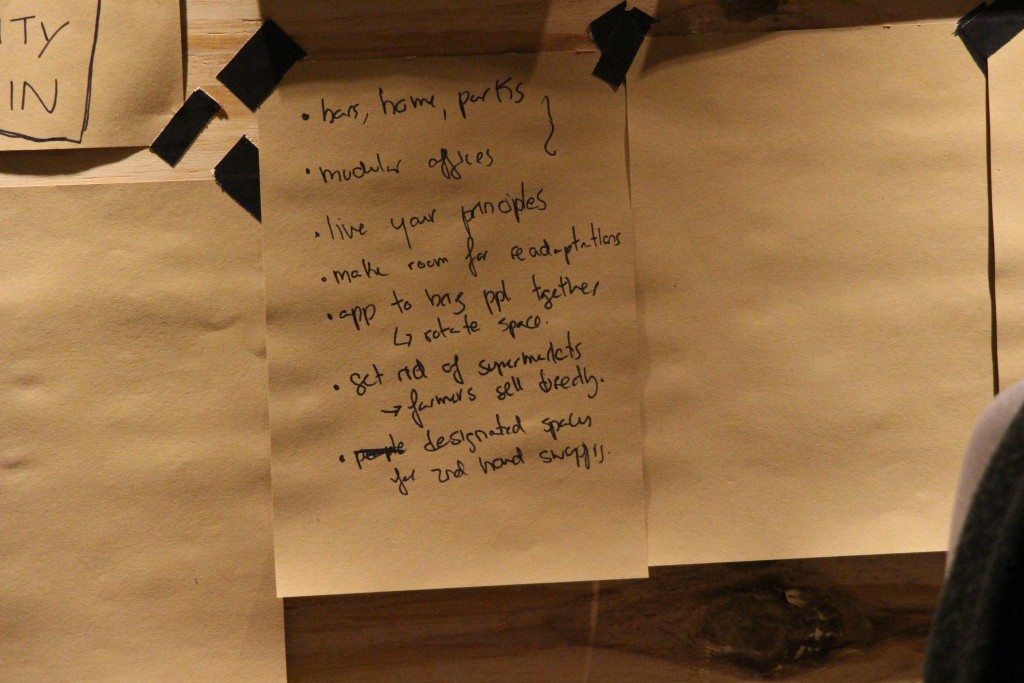 ITY
IN
• bars, home, parks
• modular offices
• live your principles
• make room for readaptations
• app to bring ppl together
↳ rotate space.
• get rid of supermarkets
→ farmers sell directly.
• people designated spaces
for 2nd hand swapping.